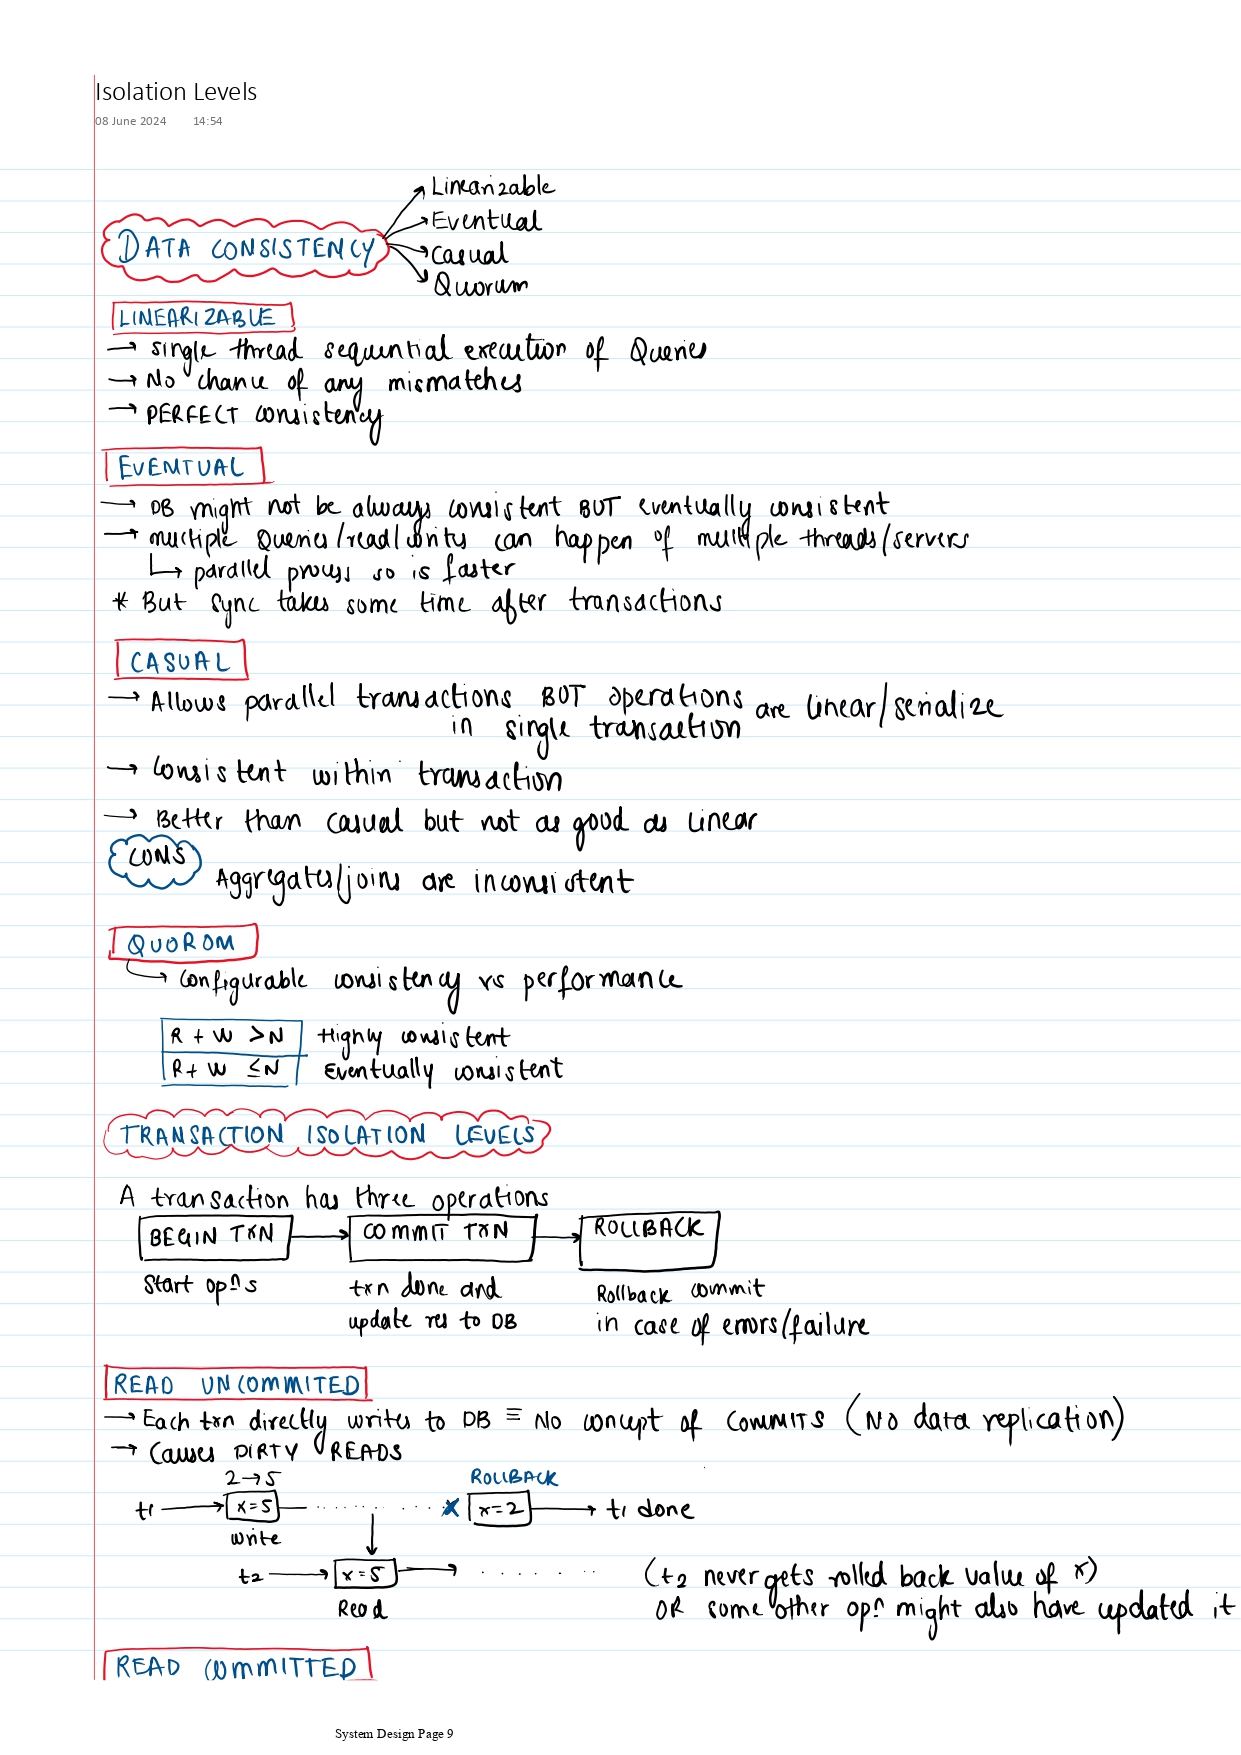 Isolation Levels
08 June 2024 14:54
Linearizable
Eventual
DATA CONSISTENCY
Casual
Quorum
LINEARIZABLE
→ single thread sequential execution of Queries
→ No chance of any mismatches
→ PERFECT consistency
EVENTUAL
→ DB might not be always consistent BUT eventually consistent
→ multiple Queries/read/writes can happen of multiple threads/servers
↳ parallel process so is faster
* But sync takes some time after transactions
CASUAL
→ Allows parallel transactions BUT operations are linear/serialize
in single transaction
→ Consistent within transaction
→ Better than casual but not as good as linear
CONS
Aggregates/joins are inconsistent
QUOROM
→ Configurable consistency vs performance
R + W > N Highly consistent
R + W ≤ N Eventually consistent
TRANSACTION ISOLATION LEVELS
A transaction has three operations
BEGIN TXN → COMMIT TXN → ROLLBACK
Start opⁿs txn done and Rollback commit
update res to DB in case of errors/failure
READ UNCOMMITED
→ Each txn directly writes to DB ≡ No concept of COMMITS (No data replication)
→ Causes DIRTY READS
2→5 ROLLBACK
t1 → x=5 ........ x x=2 → t1 done
write
t2 → x=5 → ...... (t2 never gets rolled back value of x)
Read OR some other opⁿ might also have updated it
READ COMMITTED
System Design Page 9